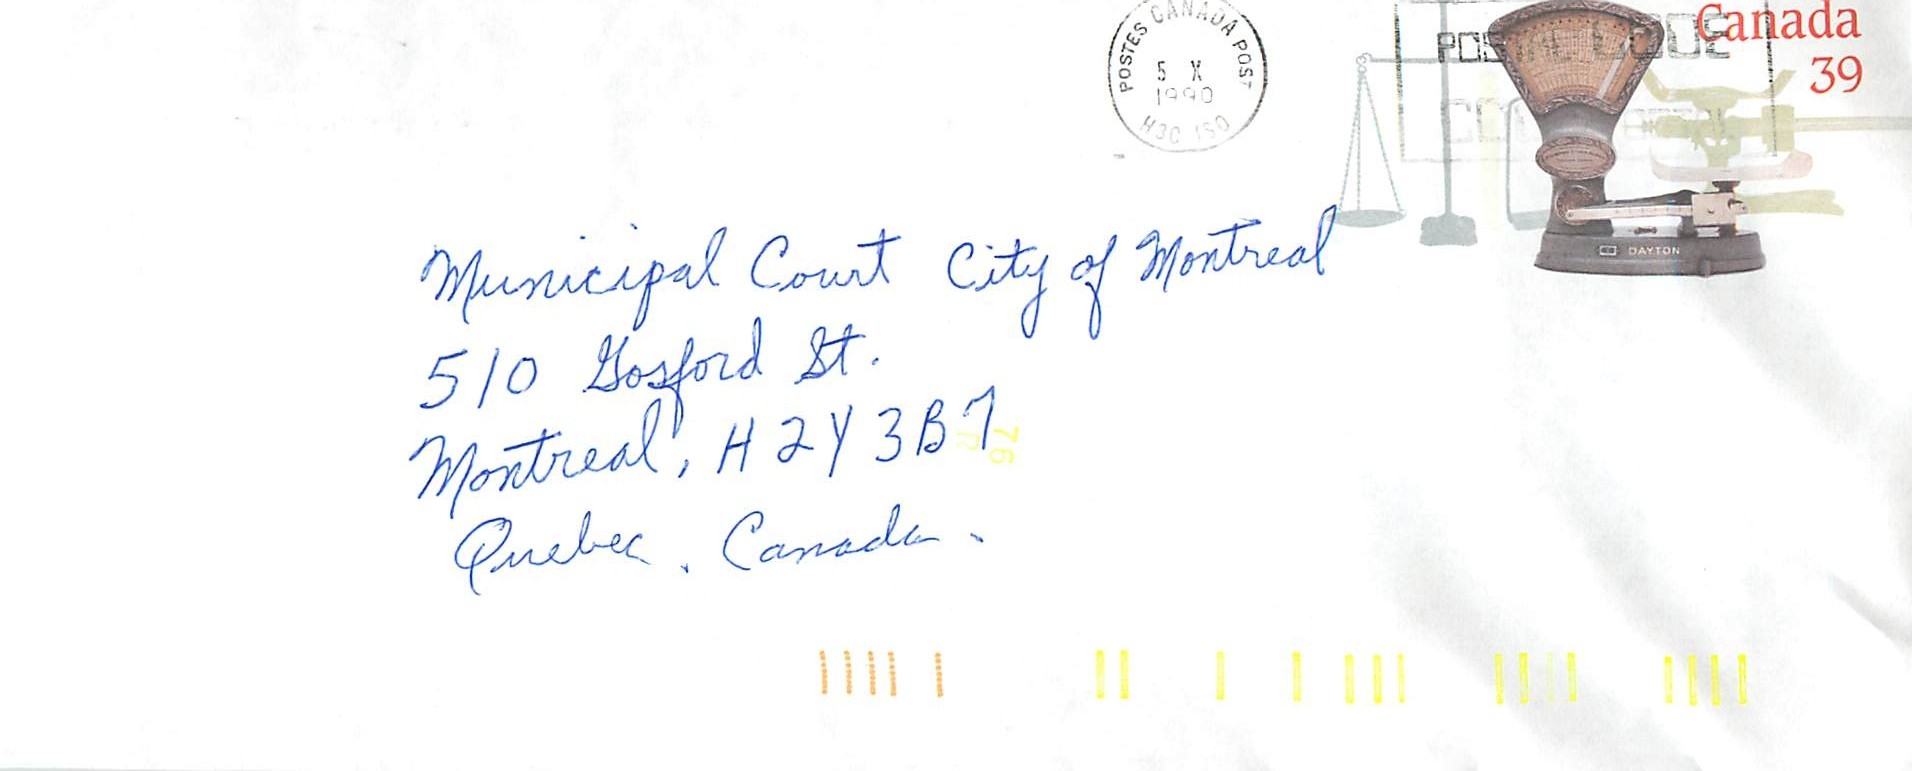 POSTES CANADA POST
5 X
1990
H3C 1S0
Canada
39
POSTAL CODE
DAYTON
Municipal Court City of Montreal
510 Gosford St.
Montreal, H2Y 3B7
76
R
Quebec, Canada.